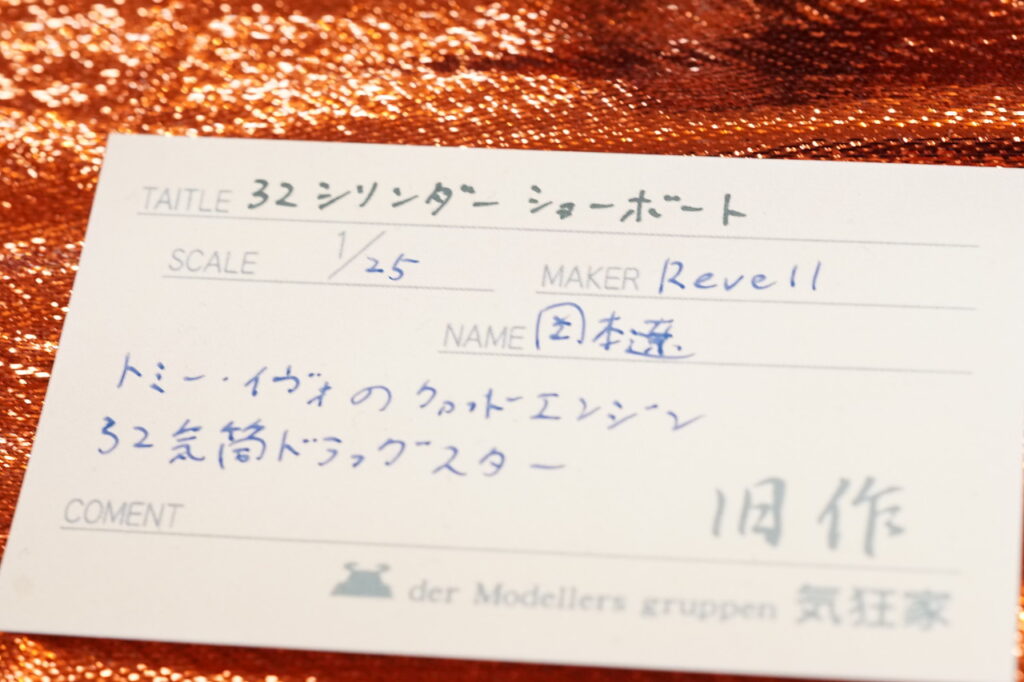 TAITLE 32シリンダー ショーボート
SCALE 1/25
MAKER Revell
NAME 岡本遼
トミー・イヴォのクアッドエンジン
32気筒ドラッグスター
COMENT
旧作
der Modellers gruppen 気狂家